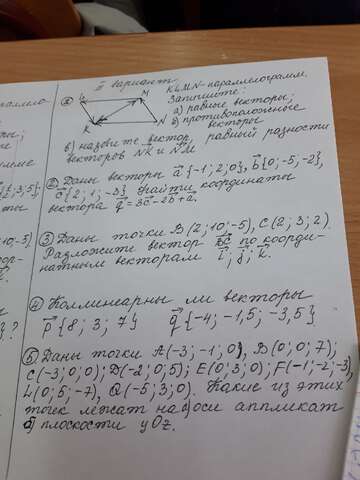 II вариант
① L M K N
KLMN-параллелограмм.
Запишите:
а) равные векторы;
б) противоположные
векторы
в) назовите вектор, равный разности
векторов NK и NM
② Даны векторы a{-1; 2; 0}, b{0; -5; -2},
c{2; 1; -3}. Найти координаты
вектора q = 3c - 2b + a.
③ Даны точки B(2; 10; -5), C(2; 3; 2).
Разложите вектор BC по коорди-
натным векторам i; j; k.
④ Коллинеарны ли векторы
p{8; 3; 7} q{-4; -1,5; -3,5}
⑤ Даны точки A(-3; -1; 0), B(0; 0; 7);
C(-3; 0; 0); D(-2; 0; 5); E(0; 3; 0); F(-1; -2; -3),
L(0; 5; -7), Q(-5; 3; 0). Какие из этих
точек лежат на а) оси аппликат
б) плоскости yOz.